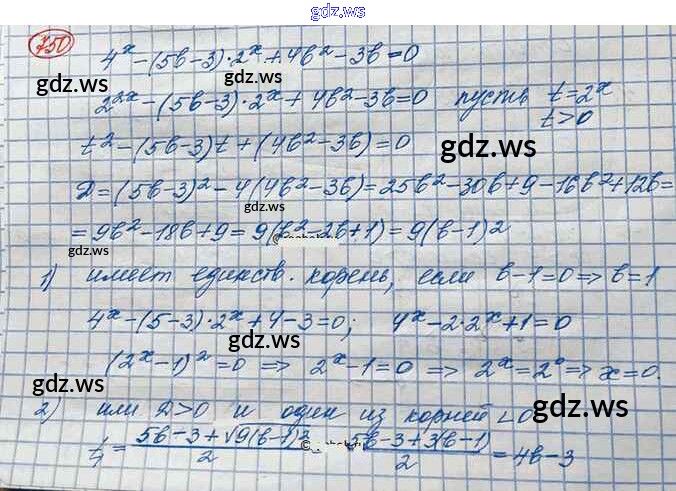 gdz.ws
750 4^x-(5b-3)·2^x+4b²-3b=0
gdz.ws gdz.ws
2^{2x}-(5b-3)·2^x+4b²-3b=0 пусть t=2^x
t>0
t²-(5b-3)t+(4b²-3b)=0 gdz.ws
D=(5b-3)²-4(4b²-3b)=25b²-30b+9-16b²+12b=
gdz.ws
=9b²-18b+9=9(b²-2b+1)=9(b-1)²
gdz.ws
1) имеет единств. корень, если b-1=0=>b=1
4^x-(5-3)·2^x+4-3=0; 4^x-2·2^x+1=0
gdz.ws gdz.ws
(2^x-1)²=0 => 2^x-1=0 => 2^x=2^0=>x=0.
gdz.ws gdz.ws
2) или D>0 и один из корней <0
t₁=\frac{5b-3+√9(b-1)²}{2}=\frac{5b-3+3(b-1)}{2}=4b-3